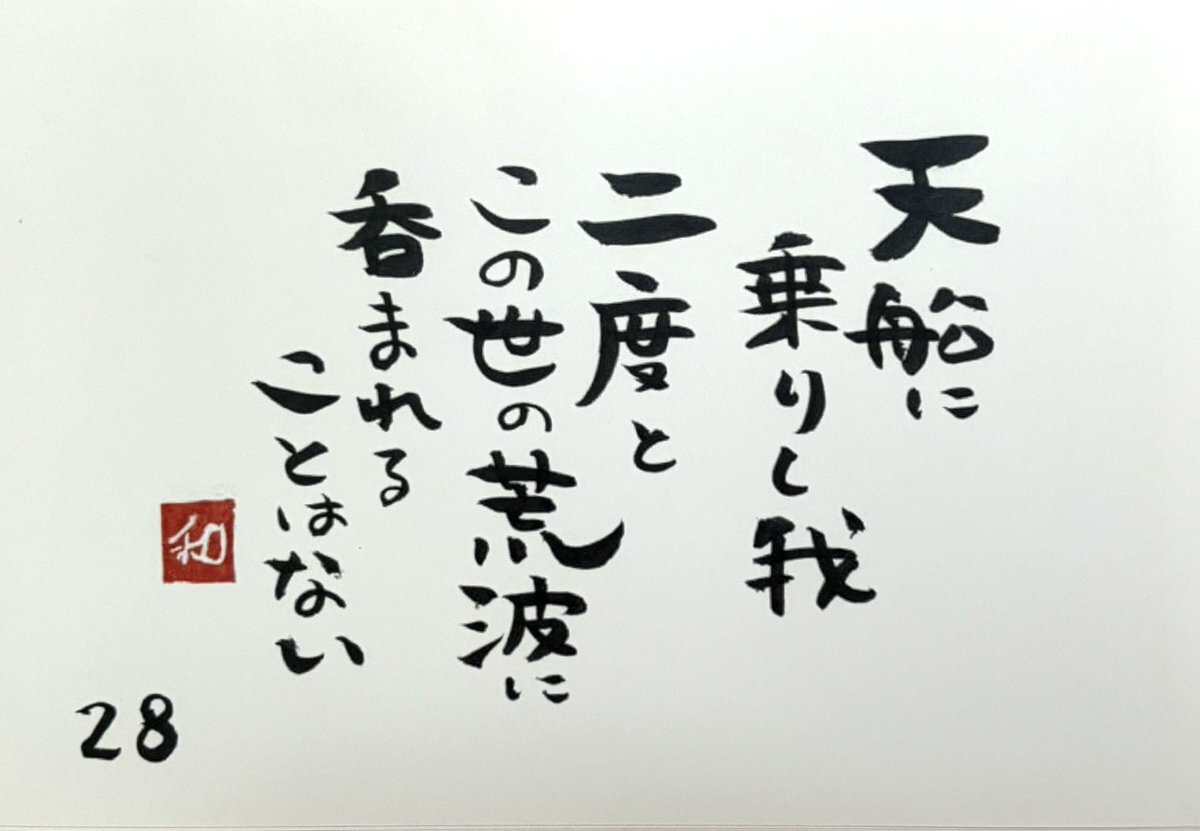 天船に
乗りし我
二度と
この世の荒波に
呑まれる
ことはない
和
28